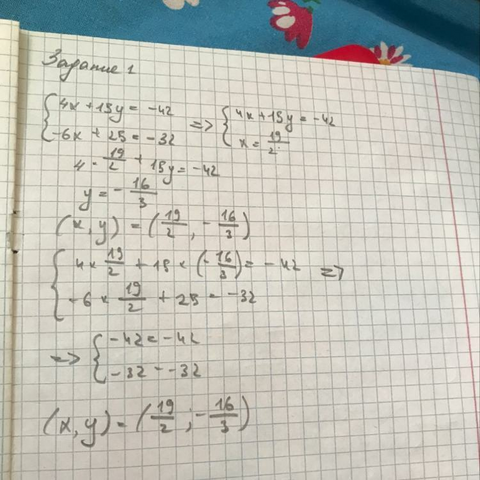 Задание 1
{ 4x + 15y = -42 => { 4x + 15y = -42
-6x + 25 = -32 x = 19/2
4 · 19/2 + 15y = -42
y = - 16/3
(x, y) = (19/2 ; - 16/3)
{ 4 × 19/2 + 15 × (-16/3) = -42 =>
-6 × 19/2 + 25 = -32
=> { -42 = -42
-32 = -32
(x, y) = (19/2 ; -16/3)